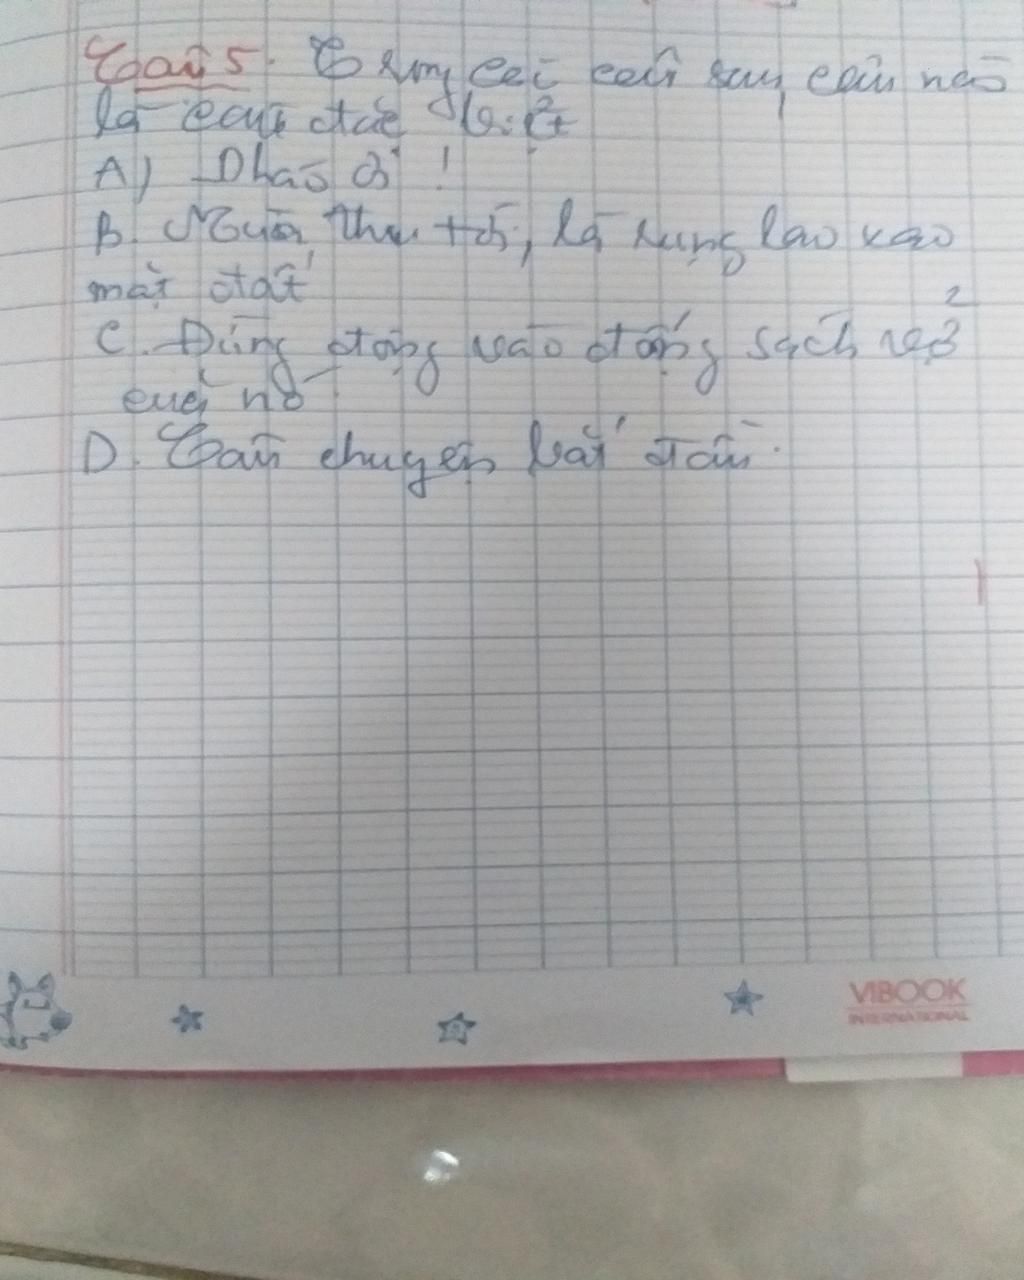 Câu 5. Trong các câu sau, câu nào
là câu đặc biệt
A) Thảo ơi !
B. Mùa thu tới, lá rụng lao xao
mặt đất
C. Đừng động vào đống sách vở
của nó
D. Câu chuyện bắt đầu.
VIBOOK
INTERNATIONAL